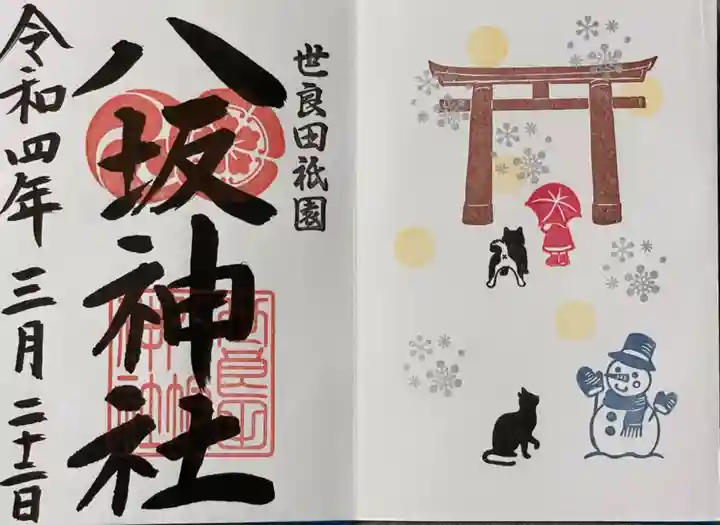 世良田祇園
八坂神社
令和四年三月二十二日